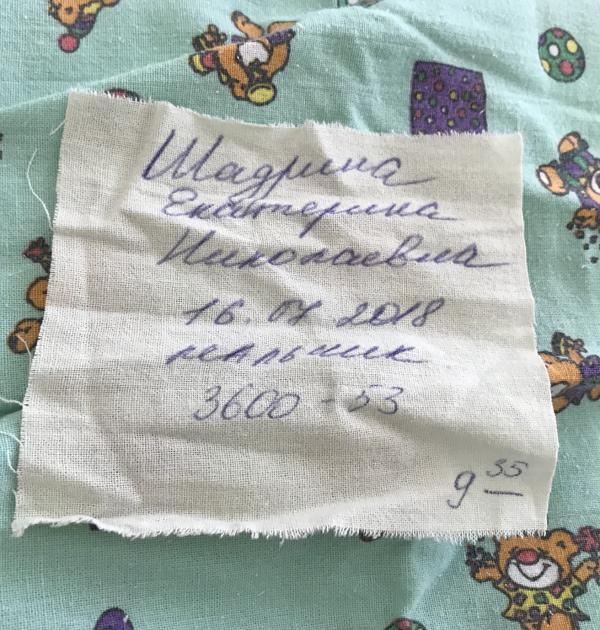 Шадрина
Екатерина
Николаевна
16.07.2018
3600-53
9 35